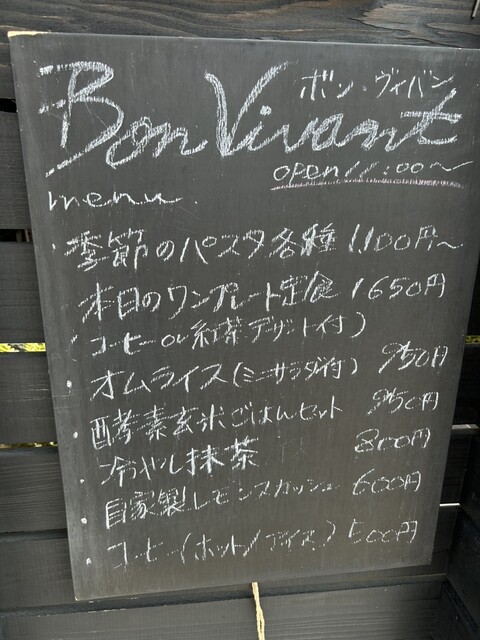 Bon Vivant
ボン・ヴィバン
open 11:00〜
menu.
・季節のパスタ各種 1,100円〜
本日のワンプレート定食 1650円
(コーヒーor紅茶デザート付)
・オムライス(ミニサラダ付) 950円
・酵素玄米ごはんセット 950円
・冷やし抹茶 800円
・自家製レモンスカッシュ 600円
・コーヒー(ホット/アイス) 500円